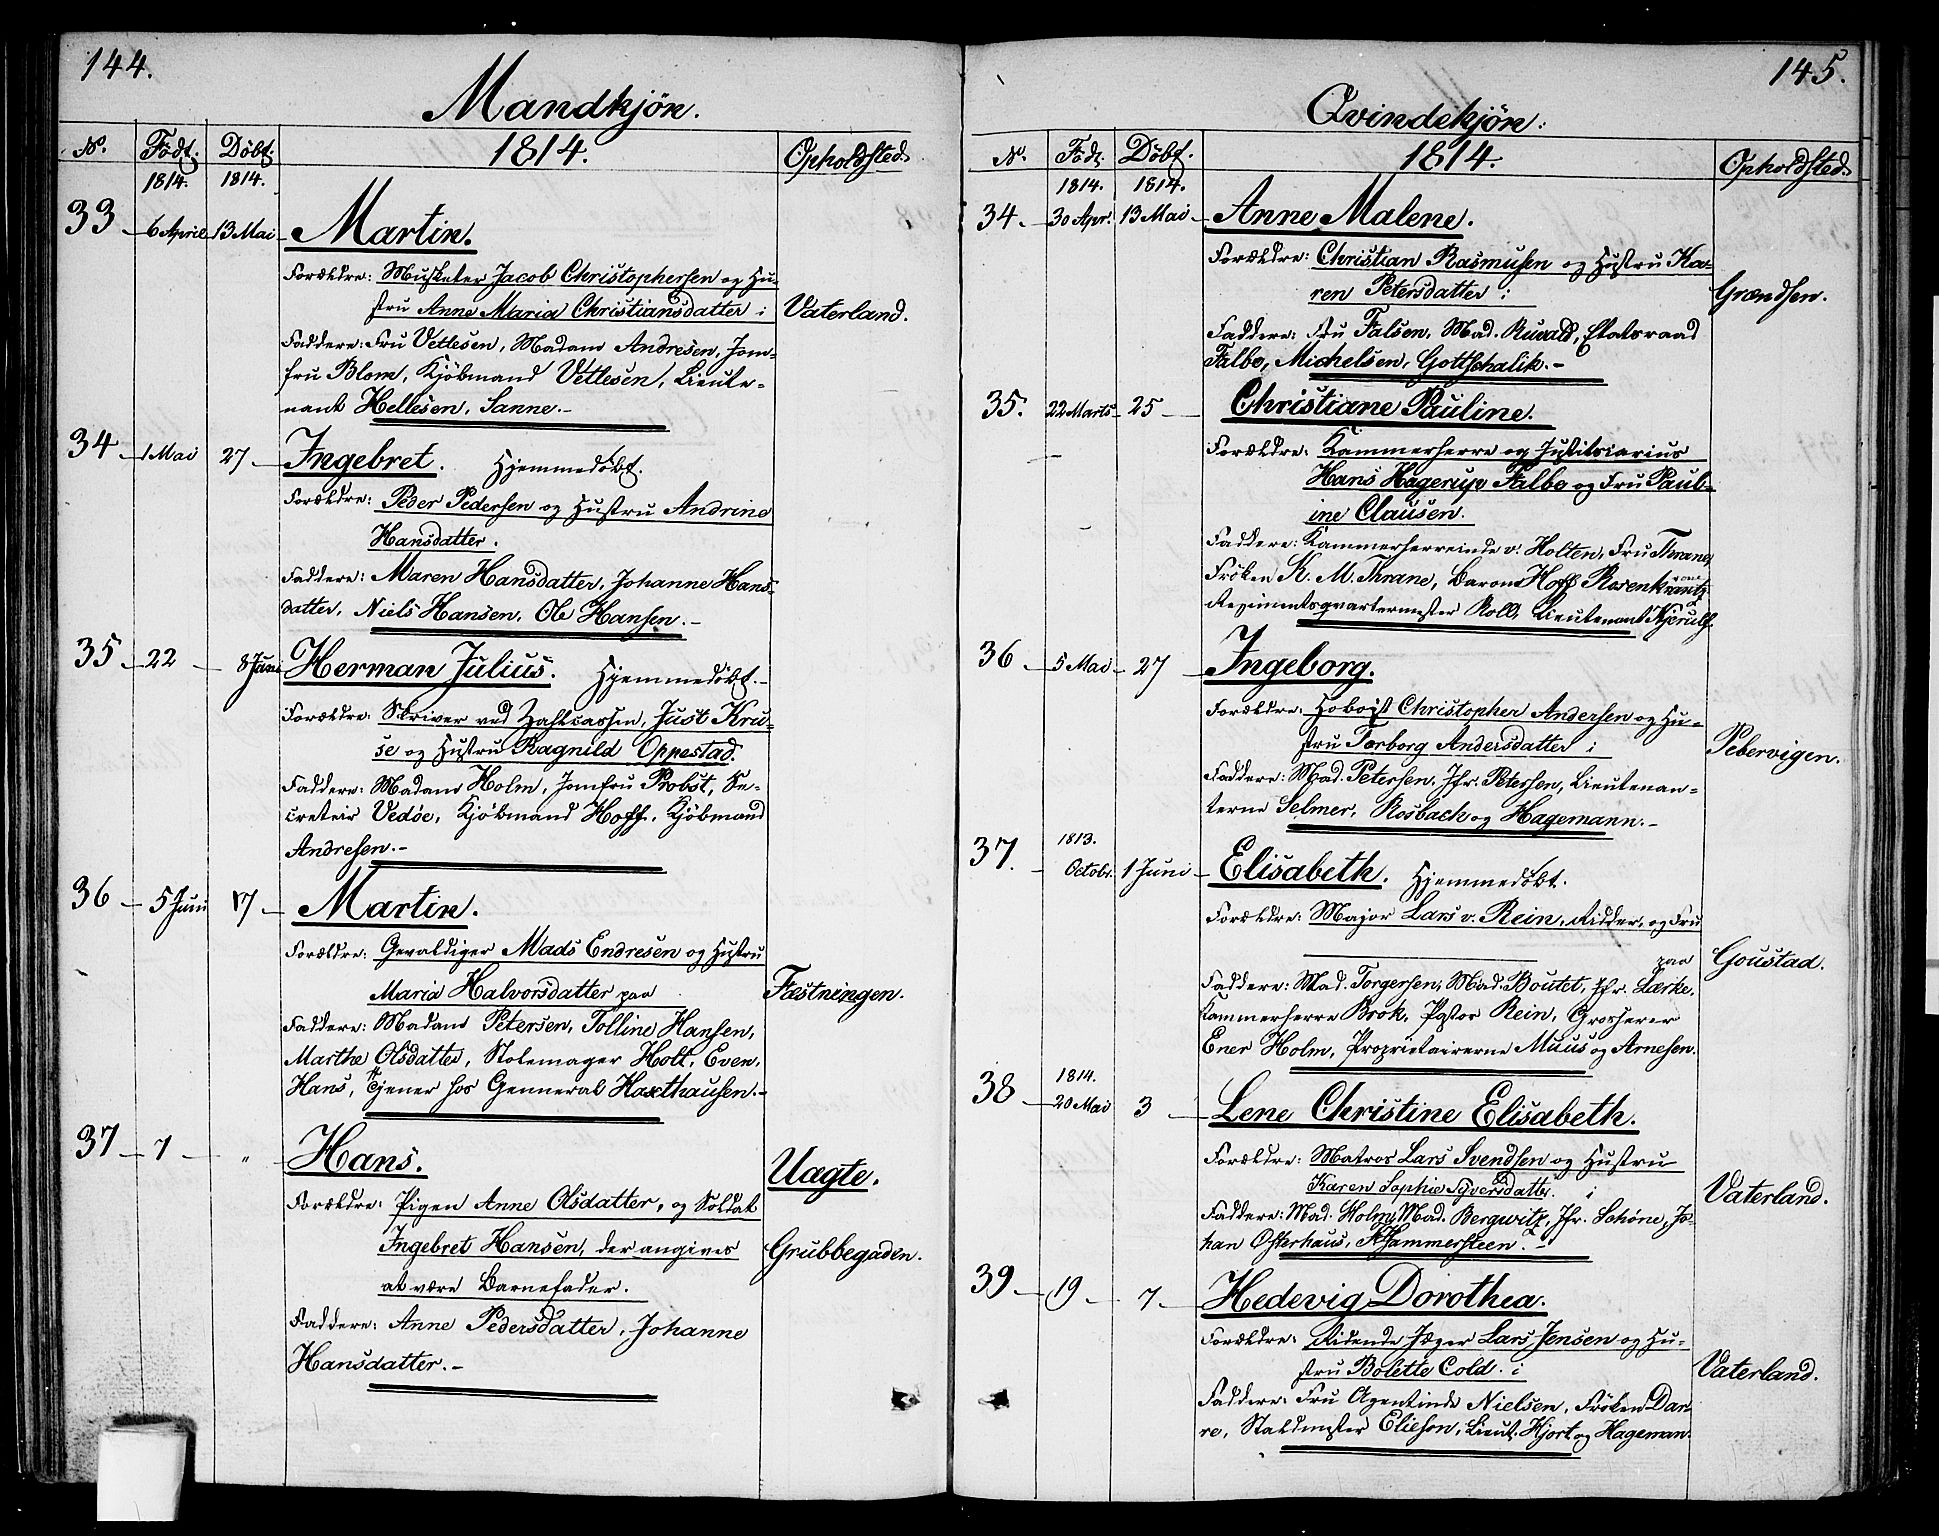 144.
Mandkjön.
No. Födt. Döbt. 1814. Opholdsted.
1814. 1814.
33 6 April 13 Mai Martin.
Forældre: Musketer Jacob Christophersen og Hu-
stru Anne Maria Christiansdatter i Vaterland.
Faddere: Fru Vettesen, Madam Andresen, Jom-
fru Blom, Kjöbmand Vettesen, Lieute-
nant Hellesen, Sanne.-
34 1 Mai 27 Ingebret. Hjemmedöbt.
Forældre: Peder Pedersen og Hustru Andrine
Hansdatter.
Faddere: Maren Hansdatter, Johanne Hans-
datter, Niels Hansen, Ole Hansen.-
35 22 8 Juni Herman Julius. Hjemmedöbt.-
Forældre: Skriver ved Zahlcassen, Just Kru-
se og Hustru Ragnild Oppestad.
Faddere: Madam Holm, Jomfru Probst, Se-
creteir Vedöe, Kjöbmand Hoff, Kjöbmand
Andresen.-
36 5 Juni 17 Martin.
Forældre: Gevaldiger Mads Endresen og Hustru
Maria Halvorsdatter paa Fæstningen.
Faddere: Madam Petersen, Tolline Hansen,
Marthe Olsdatter, Stolemager Holt, Even,
Hans, tjener hos Genneral Haxthausen.-
37 7 " Hans. Uagte.
Forældre: Pigen Anne Olsdatter, og Soldat
Ingebret Hansen, der angives Grubbegaden.
at være Barnefader.
Faddere: Anne Pedersdatter, Johanne
Hansdatter.-
145.
Qvindekjön.
No. Födt. Döbt. 1814. Opholdsted.
1814. 1814.
34 30 Apr. 13 Mai Anne Malene.
Forældre: Christian Rasmusen og Hustru Ka-
ren Petersdatter i Grændsen.
Faddere: Fru Falsen, Mad. Ruvald, Etatsraad
Falbe, Michelsen, Gottschalik.-
35. 22 Marts 25 Christiane Pauline.
Forældre: Kammerherre og Justitiarius
Hans Hagerup Falbe og Fru Paul-
ine Clausen.
Faddere: Kammerherreinde v. Holten, Fru Thrane,
Fröken K. M. Thrane, Baron Hoff Rosenkrone,
Regimentsqvartermester Roll, Lieutenant Kjerulf.
36 5 Mai 27 Ingeborg.
Forældre: Hoboist Christopher Andersen og Hu-
stru Torborg Andersdatter i Pebervigen.
Faddere: Mad. Petersen, Jfr. Petersen, Lieutenan-
terne Selmer, Rosbach og Hagemann.-
37. 1813. Octobr. 1 Juni Elisabeth. Hjemmedöbt.
Forældre: Major Lars v. Rein, Ridder, og Fru
paa Goustad.
Faddere: Mad. Torgersen, Mad. Boutet, Jfr. Lærke,
Kammerherre Brok, Pastor Rein, Grosserer
Ener Holm, Proprietairerne Muus og Arnesen.
38 1814. 20 Mai 3 Lene Christine Elisabeth.
Forældre: Matros Lars Svendsen og Hustru
Karen Sophie Syversdatter. i Vaterland.
Faddere: Mad. Holm, Mad. Bergwitz, Jfr. Schöne, Jo-
han Osterhaus, Hammersteen.-
39 19 7 Hedevig Dorothea.
Forældre: Ridende Jæger Lars Jensen og Hu-
stru Bolette Cold. i Vaterland.
Faddere: Fru Agentinde Nielsen, Fröken Dar-
re, Staldmester Elieson, Lieut. Hjort og Hageman.